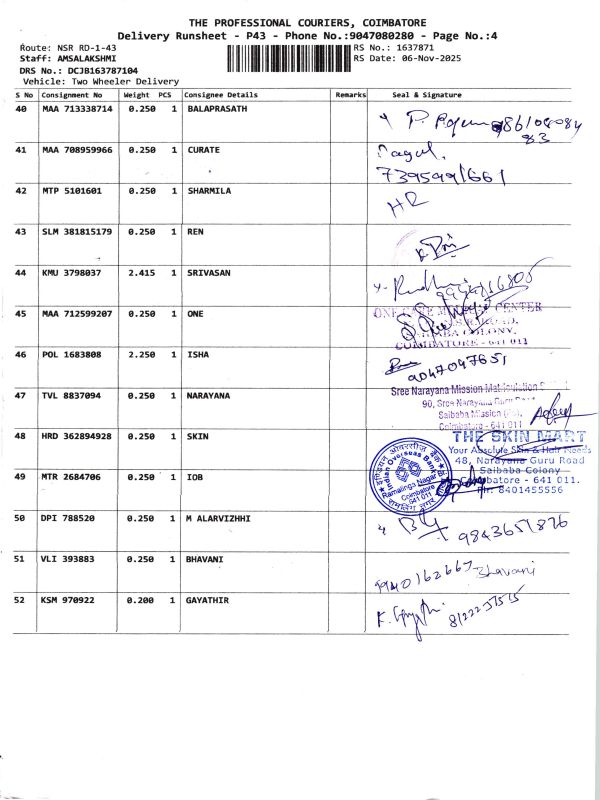 THE PROFESSIONAL COURIERS, COIMBATORE
Delivery Runsheet - P43 - Phone No.:9047080280 - Page No.:4
Route: NSR RD-1-43 RS No.: 1637871
Staff: AMSALAKSHMI RS Date: 06-Nov-2025
DRS No.: DCJB163787104
Vehicle: Two Wheeler Delivery
S No Consignment No Weight PCS Consignee Details Remarks Seal & Signature
40 MAA 713338714 0.250 1 BALAPRASATH
41 MAA 708959966 0.250 1 CURATE
7395991661
42 MTP 5101601 0.250 1 SHARMILA HR
43 SLM 381815179 0.250 1 REN
44 KMU 3798037 2.415 1 SRIVASAN
45 MAA 712599207 0.250 1 ONE
ONE CARE MEDICAL CENTER
COLONY,
COIMBATORE - 641 011
46 POL 1683808 2.250 1 ISHA 9047047651
47 TVL 8837094 0.250 1 NARAYANA
Sree Narayana Mission Matriculation
90, Sree Narayana Guru
Saibaba Mission
Coimbatore - 641 011
48 HRD 362894928 0.250 1 SKIN
THE SKIN MART
Your Absolute Skin & Hair Needs
48, Narayana Guru Road
Saibaba Colony
Coimbatore - 641 011.
Ph: 8401455556
49 MTR 2684706 0.250 1 IOB
Indian Overseas Bank
Ramalinga Nagar
Coimbatore
641 011
50 DPI 788520 0.250 1 M ALARVIZHHI 9843651876
51 VLI 393883 0.250 1 BHAVANI 9940162667 Bhavani
52 KSM 970922 0.200 1 GAYATHIR